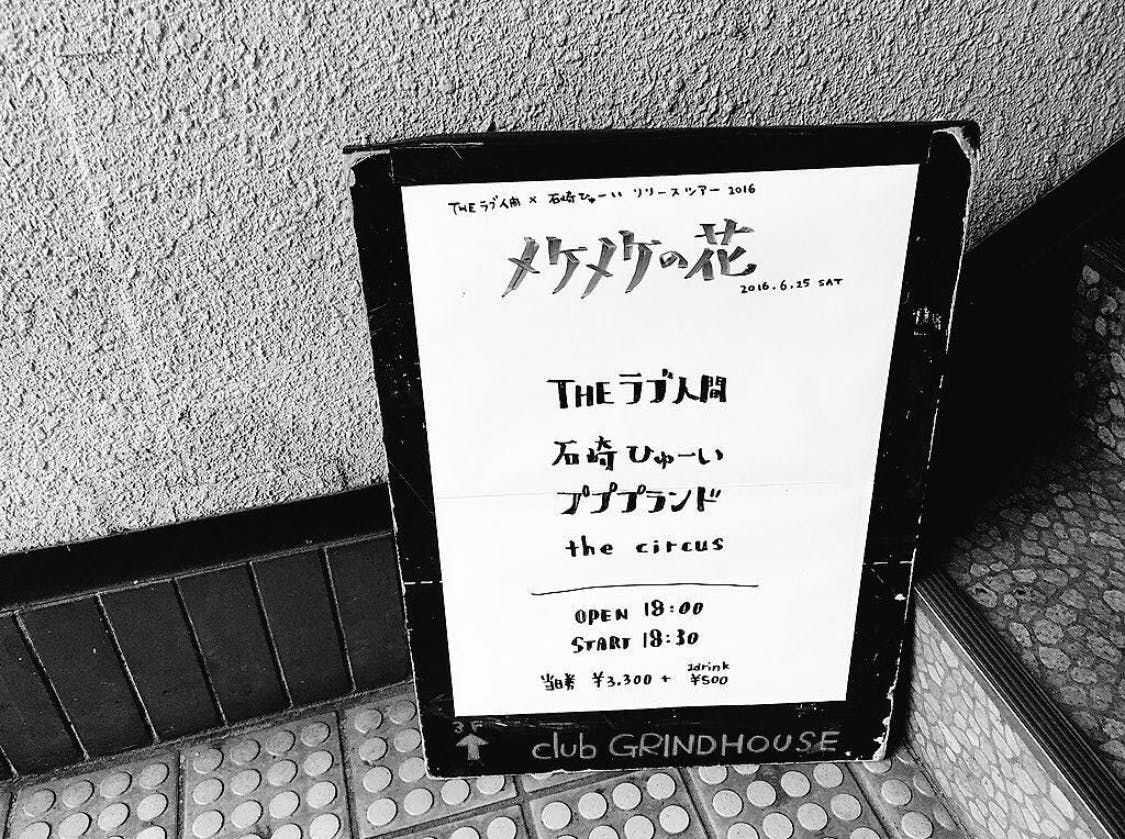 THEラブ人間 × 石崎ひゅーい リリースツアー 2016
メケメケの花
2016.6.25 SAT
THEラブ人間
石崎ひゅーい
プププランド
the circus
OPEN 18:00
START 18:30
2drink
当日券 ¥3,300 + ¥500
3F
club GRINDHOUSE.